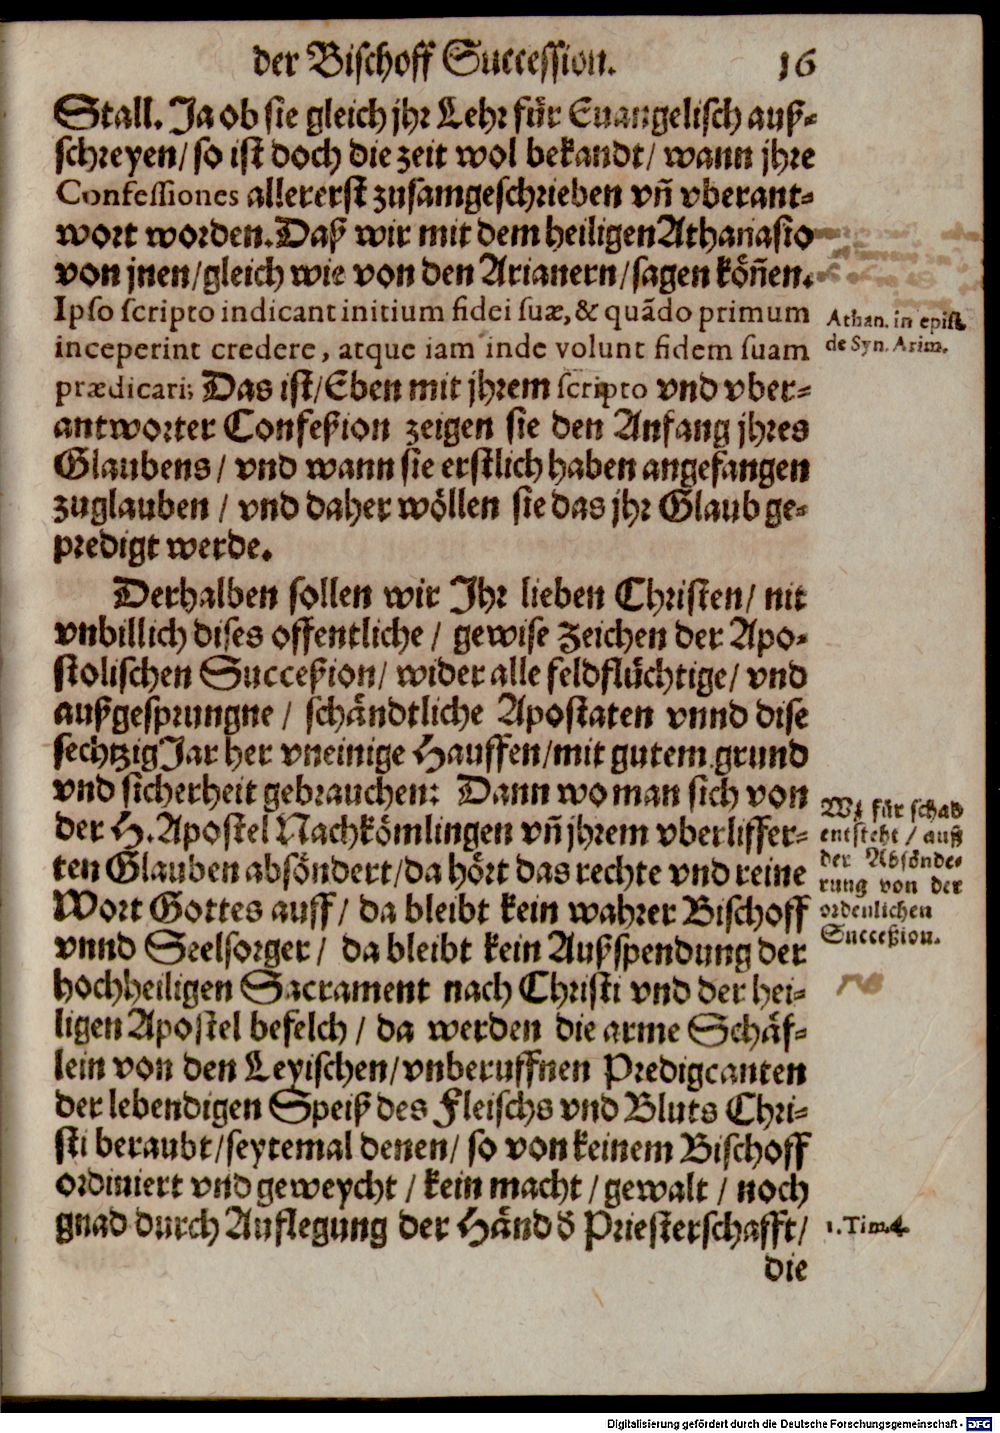 der Bischoff Succession. 16
Stall. Ja ob sie gleich jhr Lehr für Euangelisch auß-
schreyen/ so ist doch die zeit wol bekandt/ wann jhre
Confessiones allererst zusamgeschrieben vñ vberant-
wort worden. Daß wir mit dem heiligen Athanasio
von jnen/ gleich wie von den Arianern/ sagen köñen.
Ipso scripto indicant initium fidei suæ, & quãdo primum
inceperint credere, atque iam inde volunt fidem suam
prædicari; Das ist/ Eben mit jhrem scripto vnd vber-
antworter Confeßion zeigen sie den Anfang jhres
Glaubens/ vnd wann sie erstlich haben angefangen
zuglauben/ vnd daher wöllen sie das jhr Glaub ge-
predigt werde.
Athan. in epist.
de Syn. Arim.
Derhalben sollen wir Ihr lieben Christen/ nit
vnbillich dises offentliche/ gewise Zeichen der Apo-
stolischen Succeßion/ wider alle feldflüchtige/ vnd
außgesprungne/ schändtliche Apostaten vnnd dise
sechtzig Jar her vneinige Hauffen/ mit gutem grund
vnd sicherheit gebrauchen: Dann wo man sich von
der H. Apostel Nachkömlingen vñ jhrem vberliffer-
ten Glauben absöndert/ da hört das rechte vnd reine
Wort Gottes auff/ da bleibt kein wahrer Bischoff
vnnd Seelsorger/ da bleibt kein Außspendung der
hochheiligen Sacrament nach Christi vnd der hei-
ligen Apostel befelch/ da werden die arme Schäf-
lein von den Leyischen/ vnberuffnen Predigcanten
der lebendigen Speiß des Fleischs vnd Bluts Chri-
sti beraubt/ seytemal denen/ so von keinem Bischoff
ordiniert vnd geweycht/ kein macht/ gewalt/ noch
gnad durch Auflegung der Händ d̃ Priesterschafft/
die
Wz für schad
entsteht/ auß
der Absönde-
rung von der
ordenlichen
Succeßion.
1. Tim. 4.
Digitalisierung gefördert durch die Deutsche Forschungsgemeinschaft - DFG